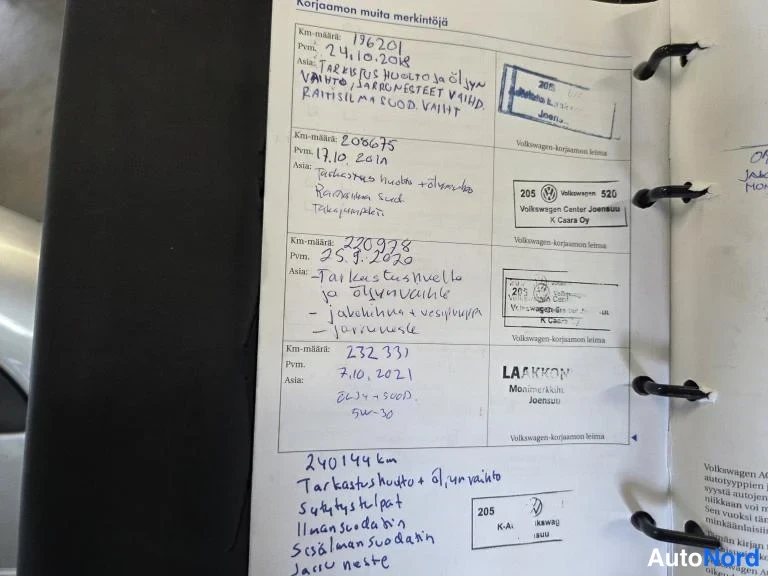 Korjaamon muita merkintöjä
Km-määrä: 196201
Pvm. 24.10.2018
Asia: TARKISTUS HUOLTO JA ÖLJYN
VAIHTO, JARRUNESTEET VAIHD.
RAITISILMASUOD. VAIHT
205
Joens
Volkswagen-korjaamon leima
Km-määrä: 208675
Pvm. 17.10.
Asia:
Tarkastus huolto + öljynvaihto
Raitisilma suod.
205 Volkswagen 520
Volkswagen Center Joensuu
K Caara Oy
Volkswagen-korjaamon leima
Km-määrä: 220978
Pvm. 25.9.2020
Asia: -Tarkastushuolto
ja öljynvaihto
- jakohihna + vesipumppu
- jarruneste
205
K Caara Oy
Volkswagen-korjaamon leima
Km-määrä: 232 331
Pvm. 7.10.2021
Asia:
ÖLJY + SUOD.
5W-30
LAAKKON
Monimerkkih
Joensuu
Volkswagen-korjaamon leima
240144 km
Tarkastushuolto + öljynvaihto
Sytytystulpat
Ilmansuodatin
Sisäilmansuodatin
Jarruneste
205
K-A kswag
suu
Volkswagen AG
autotyyppien
syystä autojen
niikkaan voi m
Sen vuoksi tän
minkäänlaisiin
kirjan
AutoNord